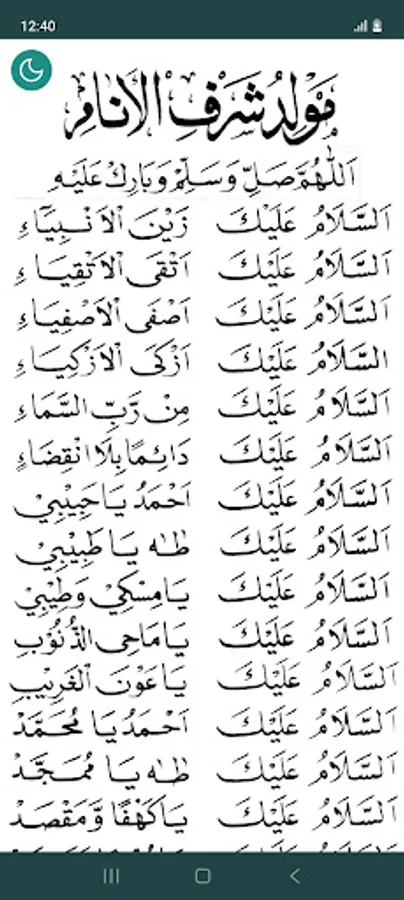 12:40
مَوْلِدُ شَرَفِ الْأَنَامِ
اَللّٰهُمَّ صَلِّ وَسَلِّمْ وَبَارِكْ عَلَيْهِ
اَلسَّلَامُ عَلَيْكَ زَيْنَ الْاَنْبِيَآءِ
اَلسَّلَامُ عَلَيْكَ اَتْقَى الْاَتْقِيَاءِ
اَلسَّلَامُ عَلَيْكَ اَصْفَى الْاَصْفِيَاءِ
السَّلَامُ عَلَيْكَ اَزْكَى الْاَزْكِيَاءِ
اَلسَّلَامُ عَلَيْكَ مِنْ رَّبِّ السَّمَاءِ
اَلسَّلَامُ عَلَيْكَ دَائِمًا بِلَا انْقِضَاءِ
اَلسَّلَامُ عَلَيْكَ اَحْمَدُ يَا حَبِيْبِيْ
اَلسَّلَامُ عَلَيْكَ طٰهٰ يَا طَبِيْبِيْ
اَلسَّلَامُ عَلَيْكَ يَا مِسْكِيْ وَطِيْبِيْ
اَلسَّلَامُ عَلَيْكَ يَا مَاحِى الذُّنُوْبِ
اَلسَّلَامُ عَلَيْكَ يَا عَوْنَ الْغَرِيْبِ
اَلسَّلَامُ عَلَيْكَ اَحْمَدُ يَا مُحَمَّدْ
اَلسَّلَامُ عَلَيْكَ طٰهٰ يَا مُمَجَّدْ
اَلسَّلَامُ عَلَيْكَ يَا كَهْفًا وَّمَقْصَدْ